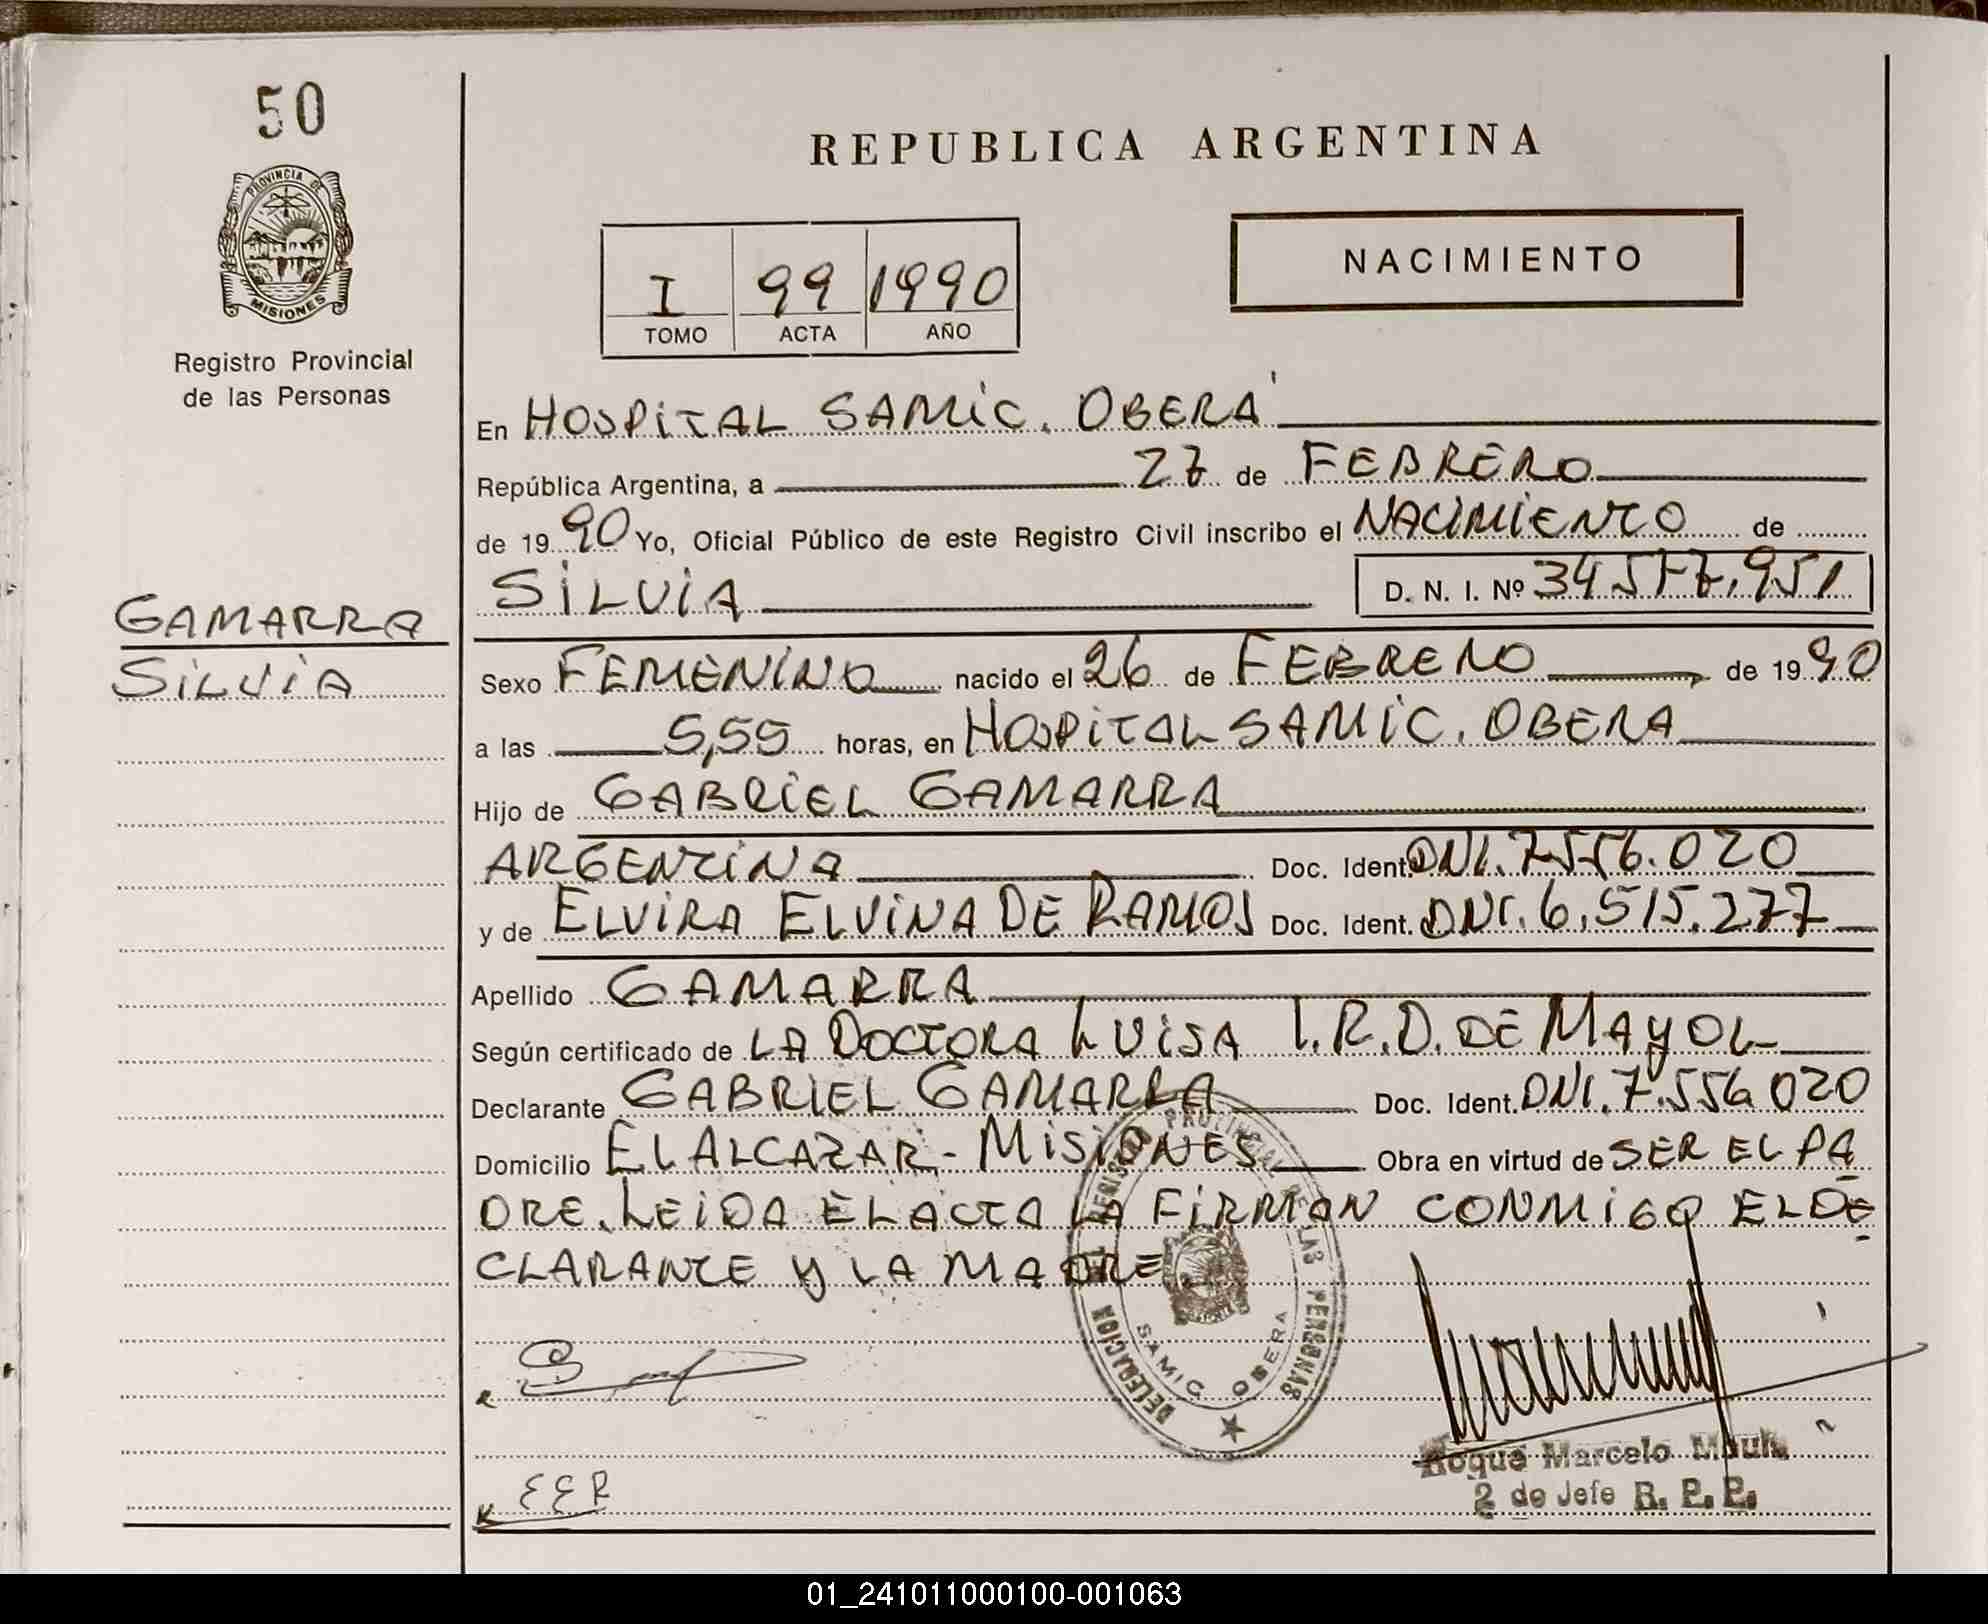 50
PROVINCIA DE
MISIONES
Registro Provincial
de las Personas
GAMARRA
SILVIA
REPUBLICA ARGENTINA
I 99 1990
TOMO ACTA AÑO
NACIMIENTO
En HOSPITAL SAMIC. OBERÁ
República Argentina, a 27 de FEBRERO
de 1990 Yo, Oficial Público de este Registro Civil inscribo el NACIMIENTO de
SILVIA D. N. I. Nº 34577.951
Sexo FEMENINO nacido el 26 de FEBRERO de 1990
a las 5,55 horas, en HOSPITAL SAMIC. OBERA
Hijo de GABRIEL GAMARRA
ARGENTINA Doc. Ident. DNI. 7556.020
y de ELVIRA ELVINA DE RAMOS Doc. Ident. DNI. 6.515.277
Apellido GAMARRA
Según certificado de LA DOCTORA LUISA I.R.D. DE MAYOL
Declarante GABRIEL GAMARRA Doc. Ident. DNI. 7.556 020
Domicilio EL ALCAZAR - MISIONES Obra en virtud de SER EL PA
DRE. LEIDA EL ACTA LA FIRMAN CONMIGO EL DE
CLARANTE Y LA MADRE
DELEGACION REGISTRO PROVINCIAL DE LAS PERSONAS
SAMIC OBERA
Roque Marcelo
2 do Jefe R. P. P.
EER
01_241011000100-001063